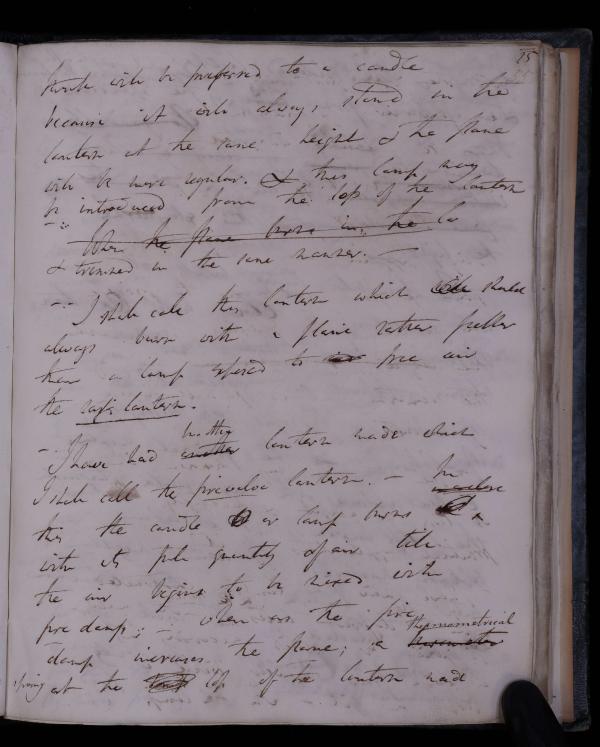 15
will be preferred to a candle
because it will always stand in the
lantern at the same height & the flame
will be more regular. & this lamp may
be introduced from the top of the lantern
When the flame burns in the la
& trimmed in the same manner. —
— I shall call this lantern which will should
always burn with a flame rather feebler
than a lamp exposed to free air
the safe lantern.
— I have had another another lantern made which
I shall call the firevalve lantern. — In
this the candle or lamp burns
with its full quantity of air till
the air begins to be mixed with
fire damp; — when as the fire
damp increases the flame; a thermometrical
spring at the top of the lantern made